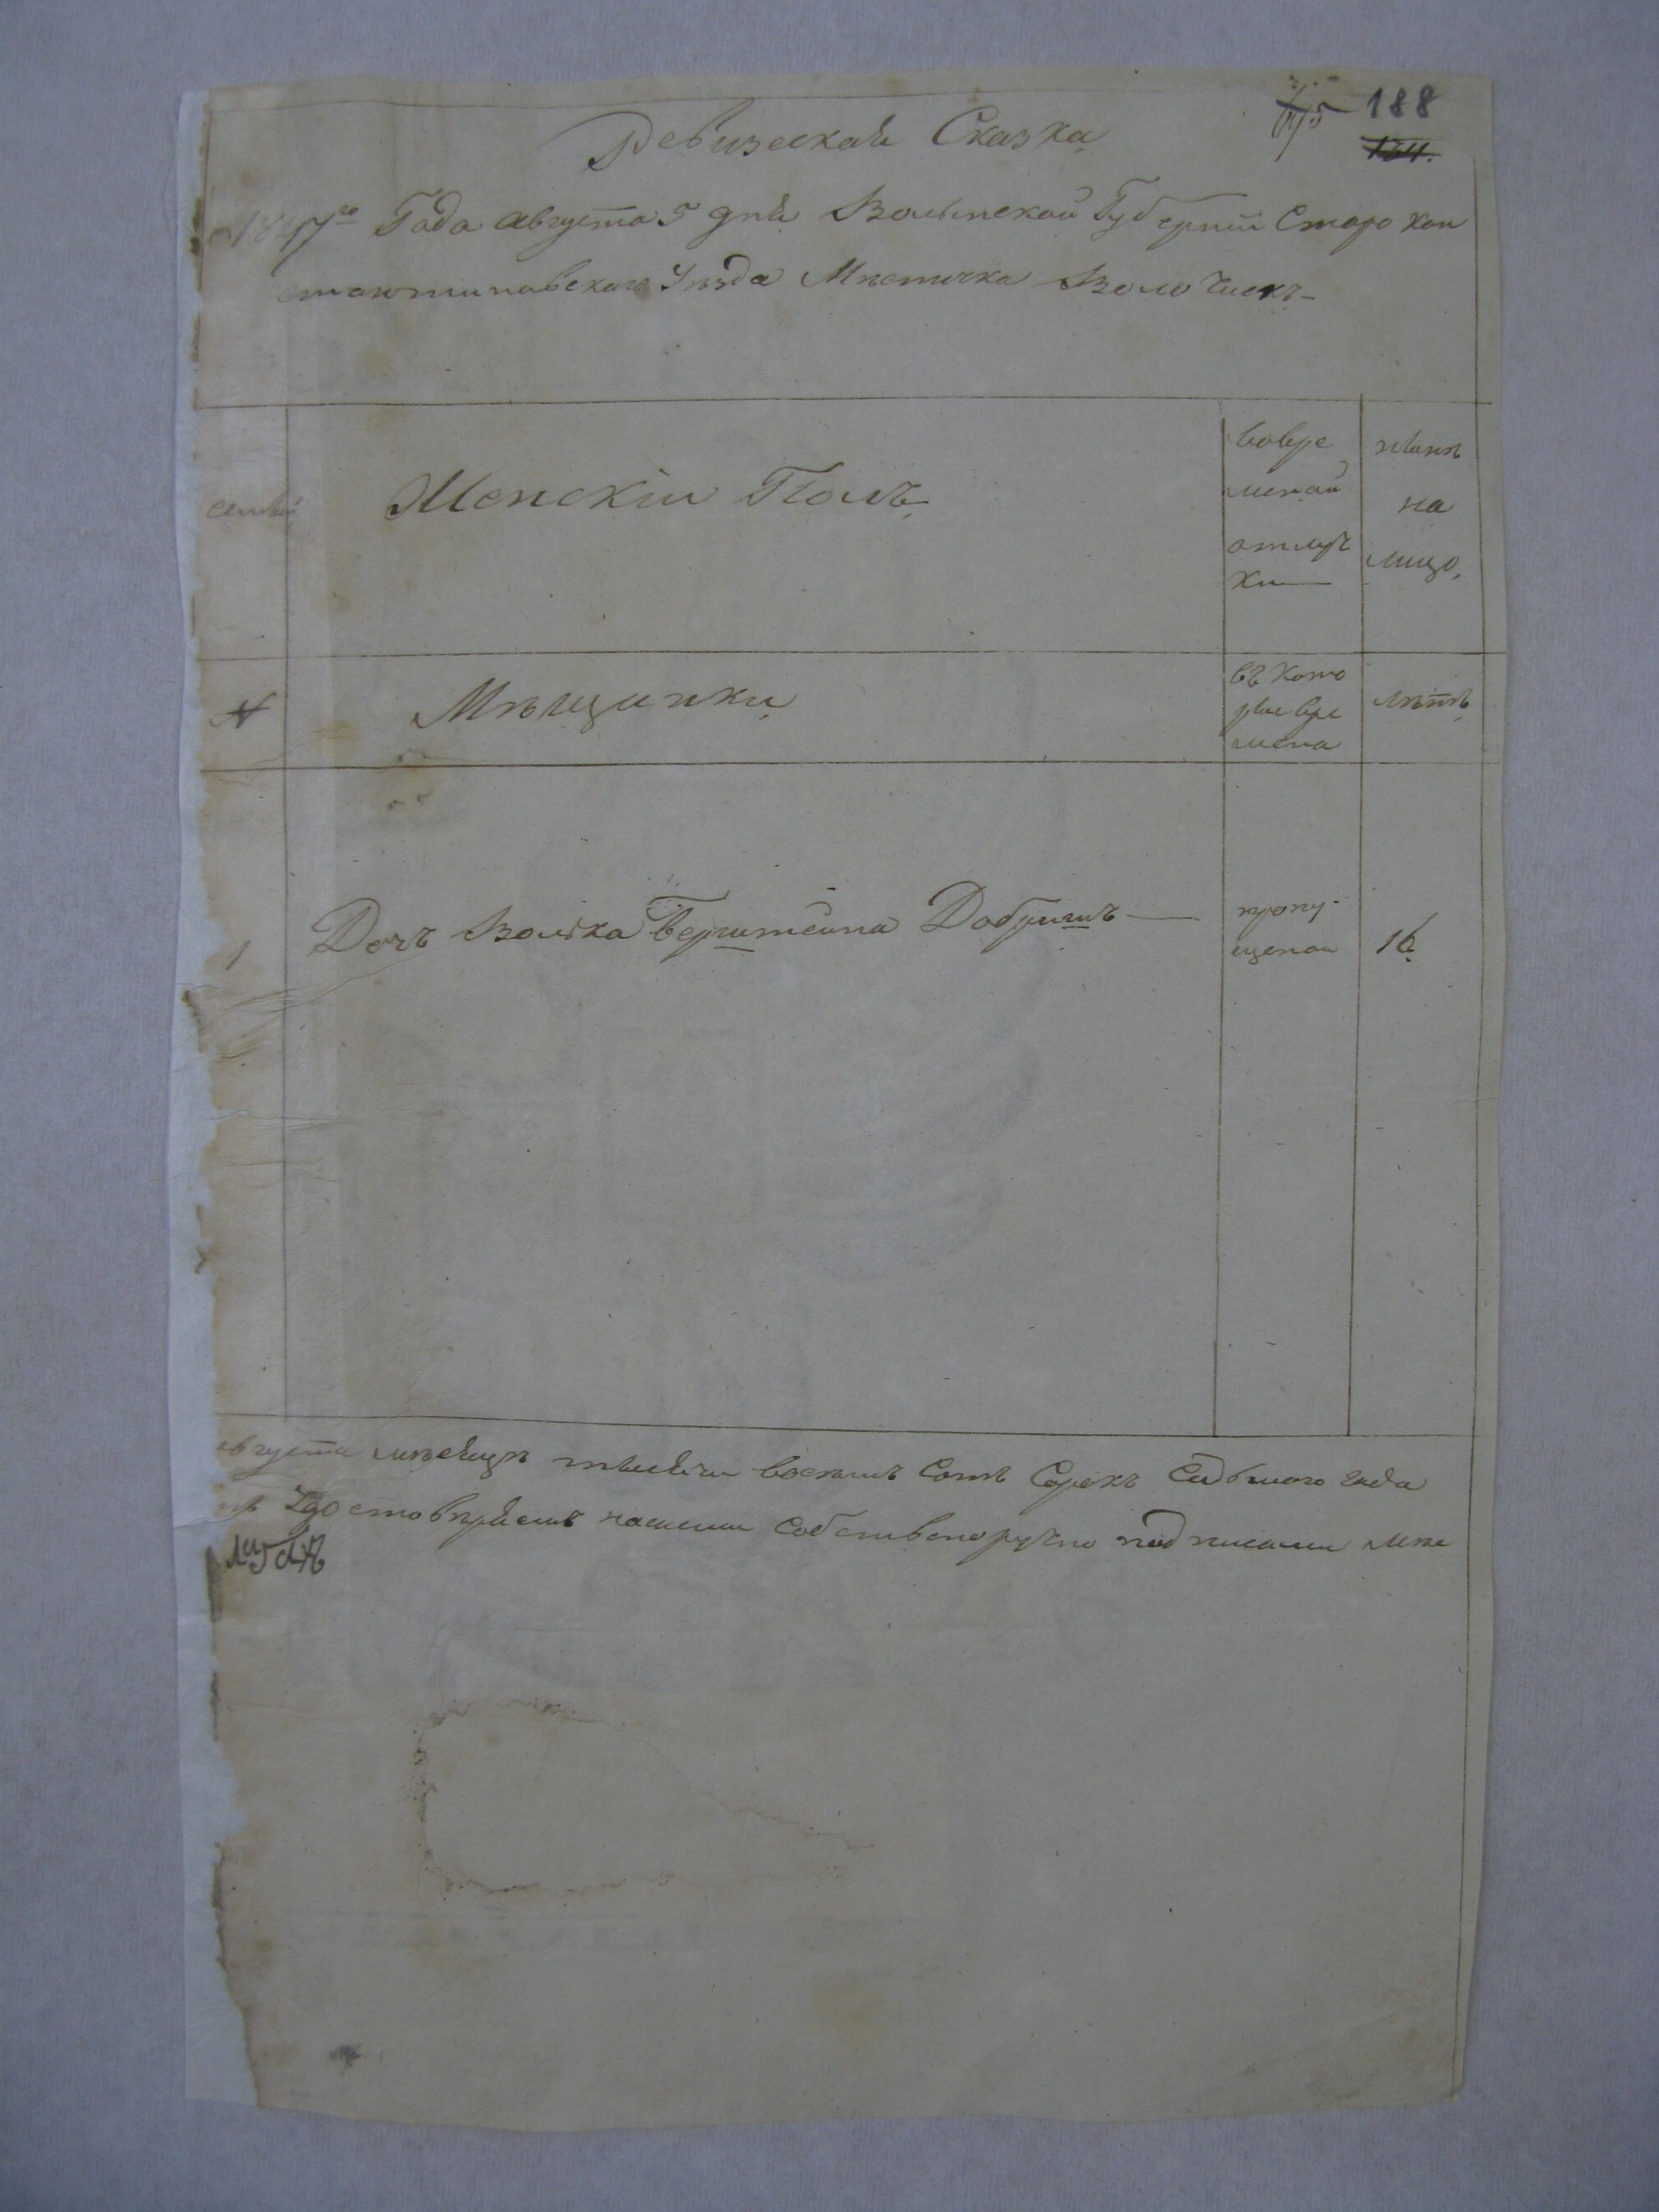 188
134.
Ревизская Сказка
1847го Года августа 5 дня Волынской Губернiи Старо Кон
стантиновскаго Уѣзда Мѣстичка Воло Чискъ
семьи
Женскiи Полъ
вовре
меной
отлуч
ки
нынѣ
на
лицо,
№
Мѣщанки
въ кото
рые вре
мена
лѣтъ
1
Дочъ Волька Бернштейна Добришъ
пропу-
щеной
16
августа мѣсяцъ тысячи восемъ Сотъ Сорокъ Седьмого Года
Удостовѣряемъ нашими Собственоручно подписами